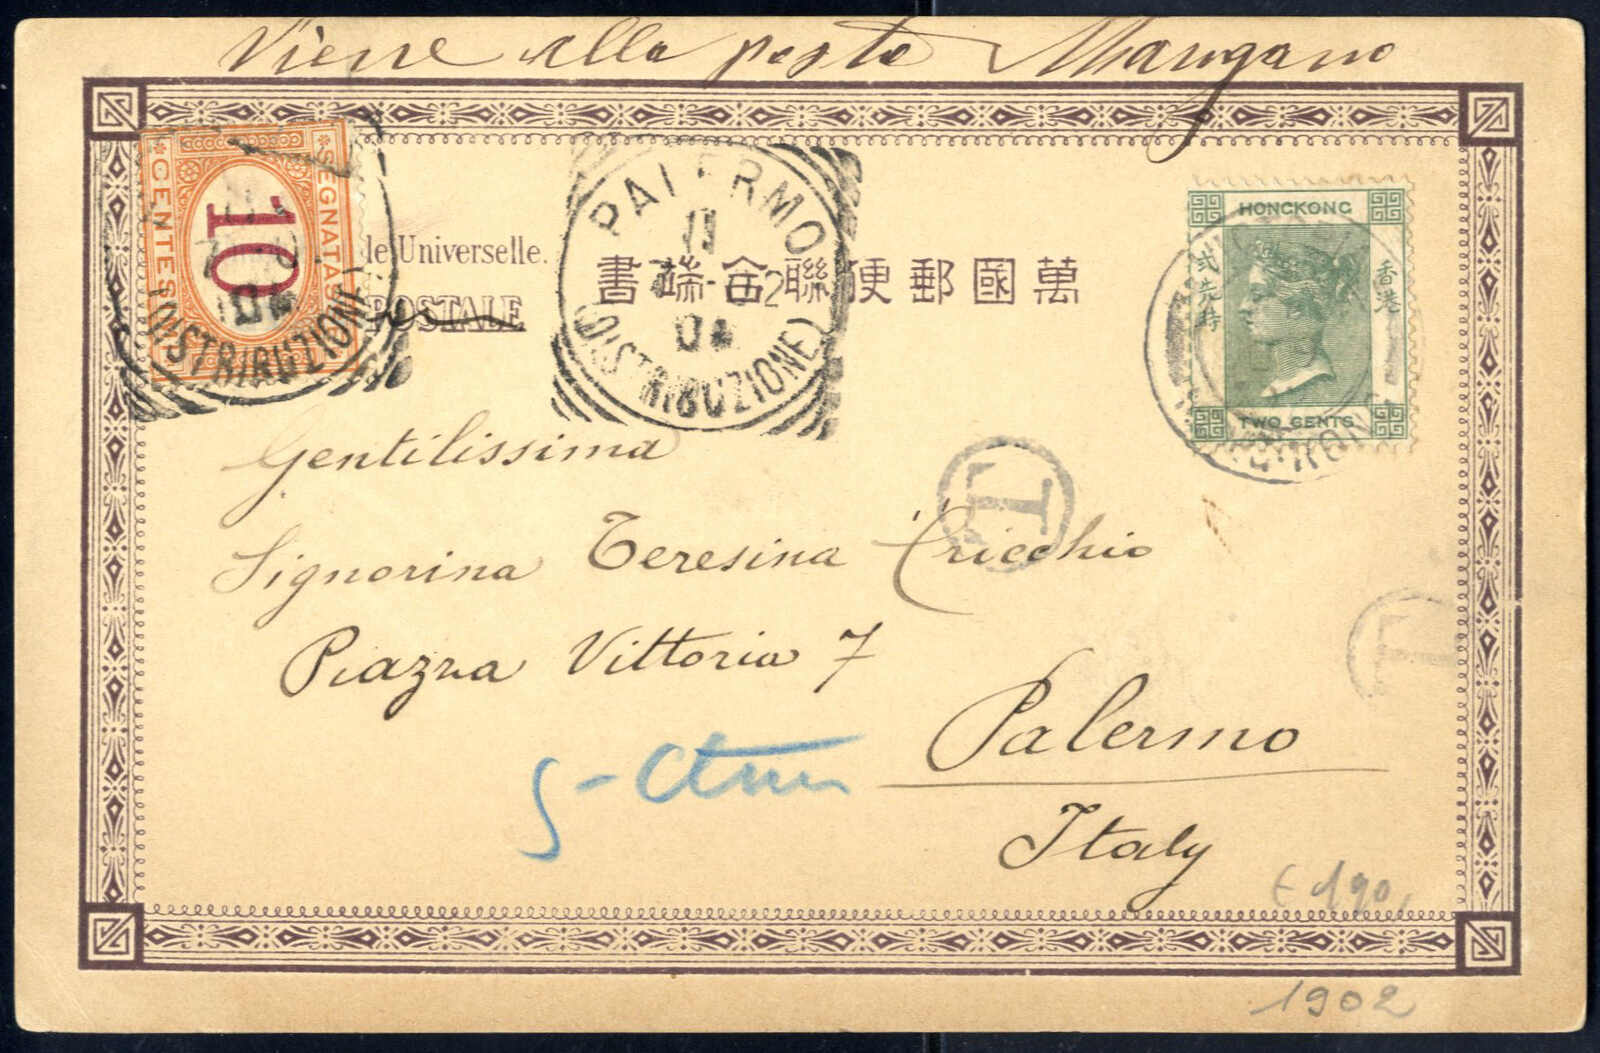 Viene alla posta Mangano
SEGNATASSE
10
CENTESIMI
de Universelle.
POSTALE
PALERMO
11
02
(DISTRIBUZIONE)
(DISTRIBUZIONE)
萬國郵便聯合端書
HONGKONG
香港
弍先時
TWO CENTS
Gentilissima
T
Signorina Teresina Cricchio
T
Piazza Vittoria 7
Palermo
Italy
€ 190,
1902